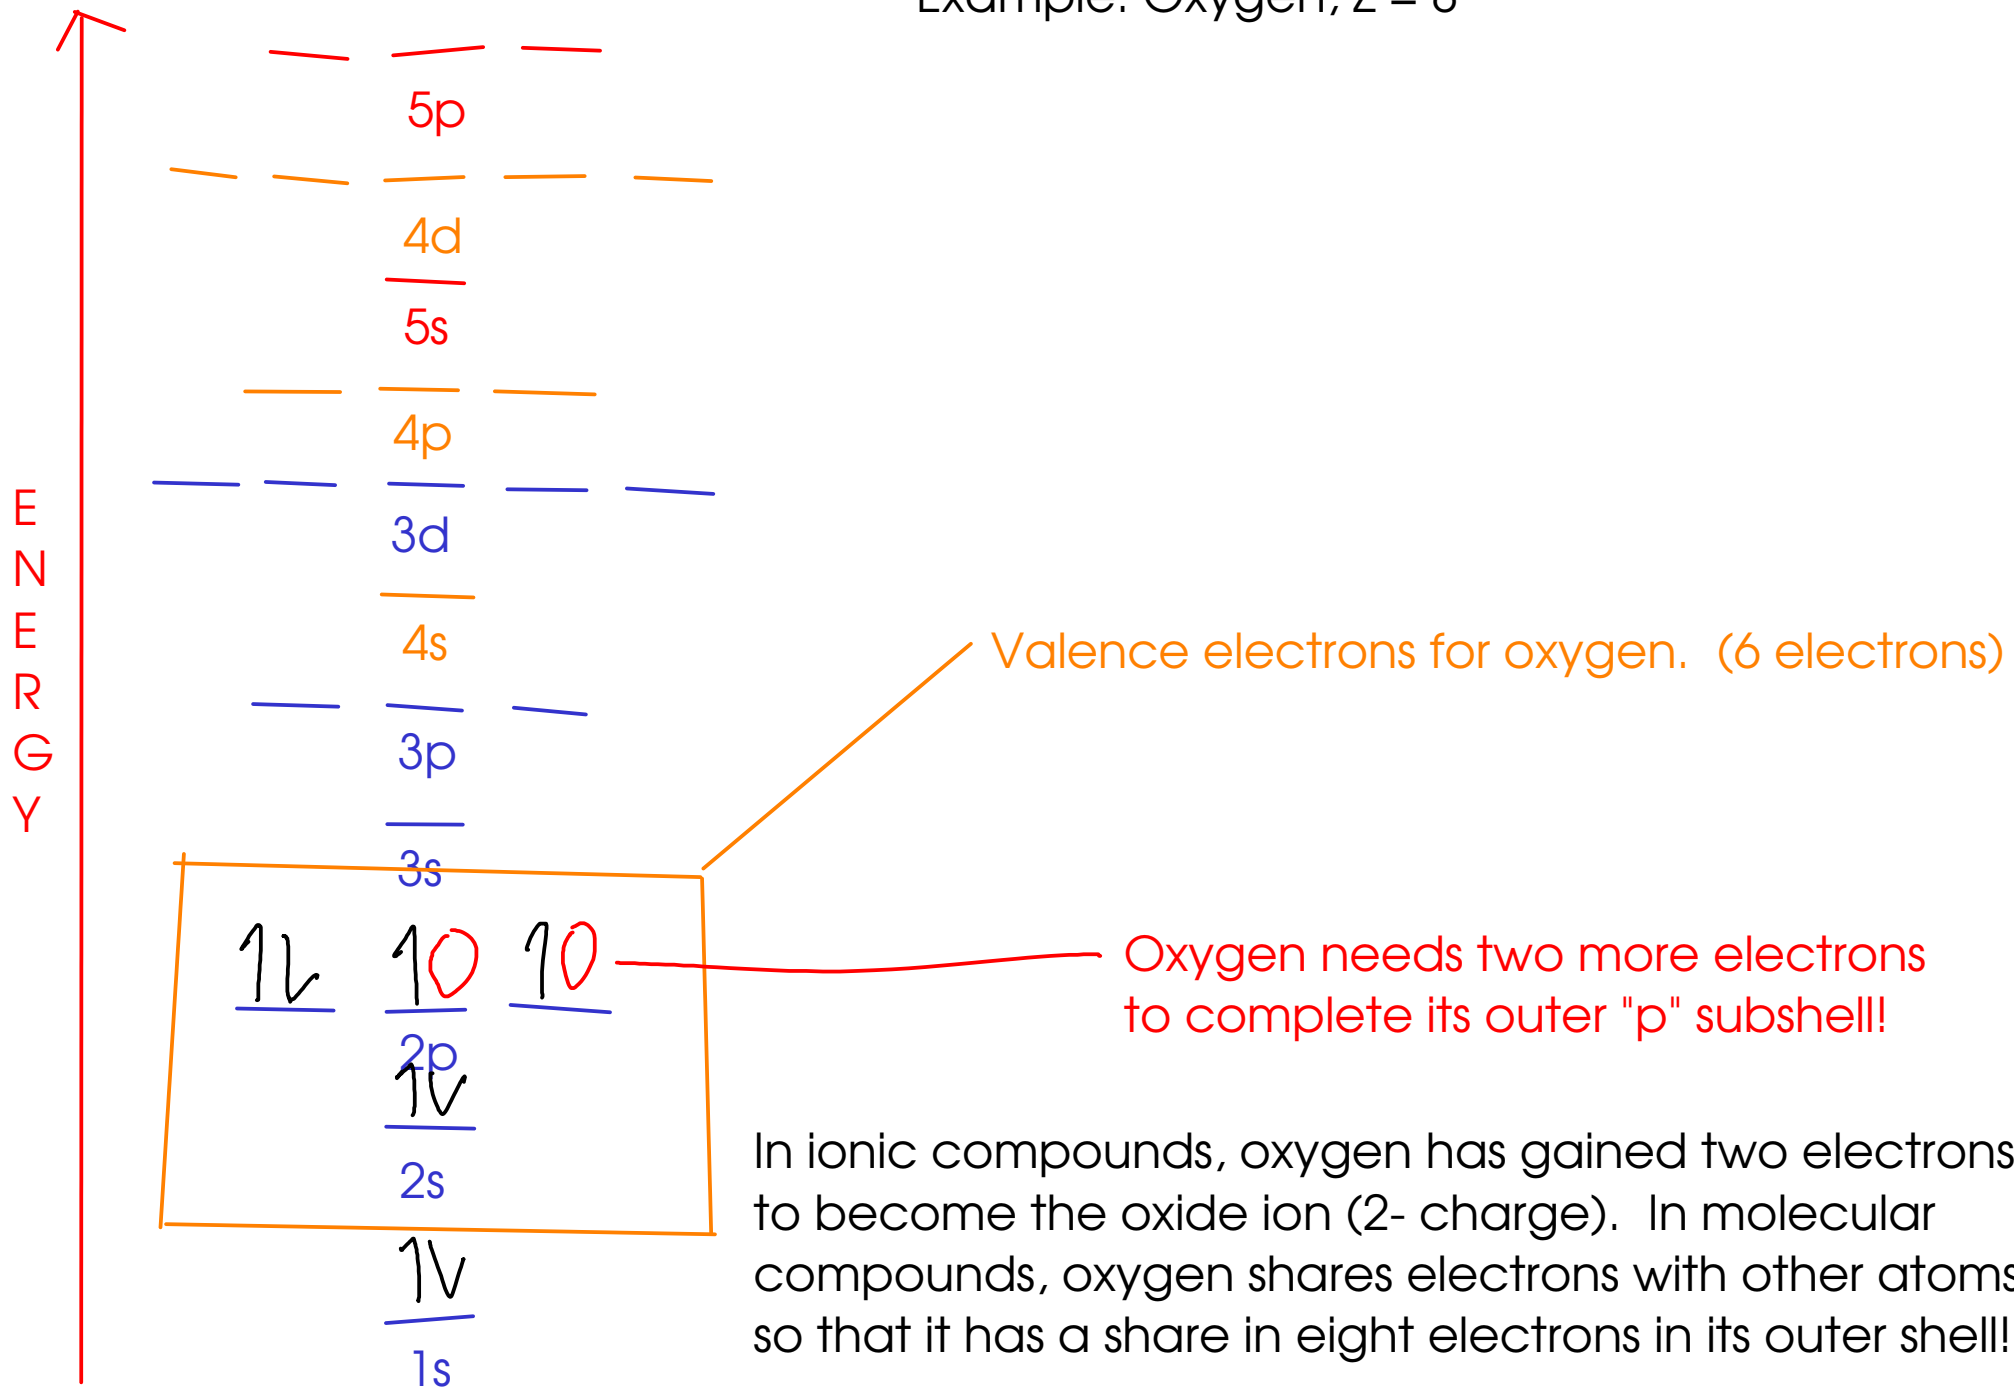 Example: Oxygen, Z = 8
5p
4d
5s
4p
3d
4s
3p
3s
2p
2s
1s
E
N
E
R
G
Y
Valence electrons for oxygen.  (6 electrons)
Oxygen needs two more electrons
to complete its outer "p" subshell!
In ionic compounds, oxygen has gained two electrons
to become the oxide ion (2- charge).  In molecular
compounds, oxygen shares electrons with other atoms
so that it has a share in eight electrons in its outer shell!